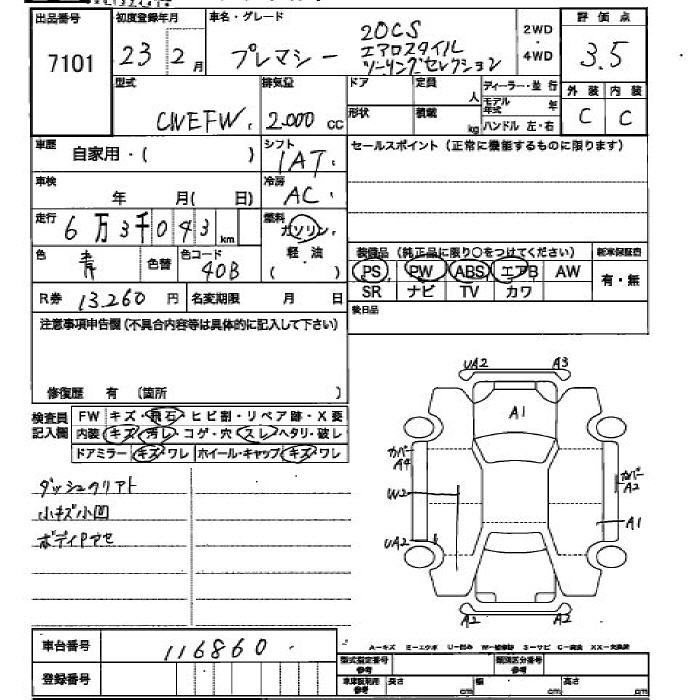 出品番号 初度登録年月 車名・グレード 評価点
7101 23 2月 プレマシー 20CS
エアロスタイル
ツーリングセレクション
2WD
・
4WD
3.5
型式 排気量 ドア 定員 人 ディーラー・並行 外装 内装
モデル年式 年
CWEFW 2.000 cc 形状 積載 kg ハンドル 左・右 C C
車歴 自家用・( ) シフト 1AT セールスポイント(正常に機能するものに限ります)
車検 年 月( 日) 冷房 AC
走行 6万3千043km 燃料 ガソリン
軽・油
( )
色 青 色替 色コード 40B
装備品(純正品に限り〇をつけてください) 新車保証書
PS PW ABS エアB AW 有・無
SR ナビ TV カワ
R券 13.260円 名変期限 月 日
後日品
注意事項申告欄(不具合内容等は具体的に記入して下さい)
修復歴 有 (箇所 )
検査員記入欄 FW キズ・飛石・ヒビ割・リペア跡・X要
内装 キズ・汚レ・コゲ・穴・スレ・ヘタリ・破レ
ドアミラー キズ・ワレ ホイール・キャップ キズ・ワレ
ダッシュクリアト
小キズ小凹
ボディPアセ
UA2 A3
A1
カバー
A4
カバー
A2
W2
A1
UA2
A2 A2
車台番号 116860
A−キズ E−エクボ U−凹み W−補修跡 S−サビ C−腐食 XX−交換済
登録番号
型式指定番号
参考
類別区分番号
参考
車庫証明用
参考
長さ cm 幅 cm 高さ cm